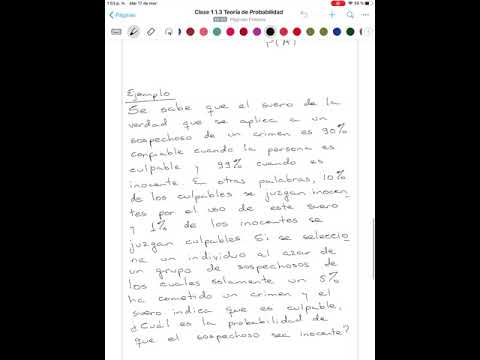 1:03 p. m. mar 17 de mar
Clase 11.3 Teoría de Probabilidad
Páginas
P(A)
Ejemplo
Se sabe que el suero de la
verdad que se aplica a un
sospechoso de un crimen es 90%
confiable cuando la persona es
culpable y 99% cuando es
inocente. En otras palabras, 10%
de los culpables se juzgan inocen
tes por el uso de este suero
y 1% de los inocentes se
juzgan culpables Si se seleccio
na un individuo al azar de
un grupo de sospechosos de
los cuales solamente un 5%
ha cometido un crimen y el
suero indica que es culpable,
¿Cuál es la probabilidad de
que el sospechoso sea inocente?